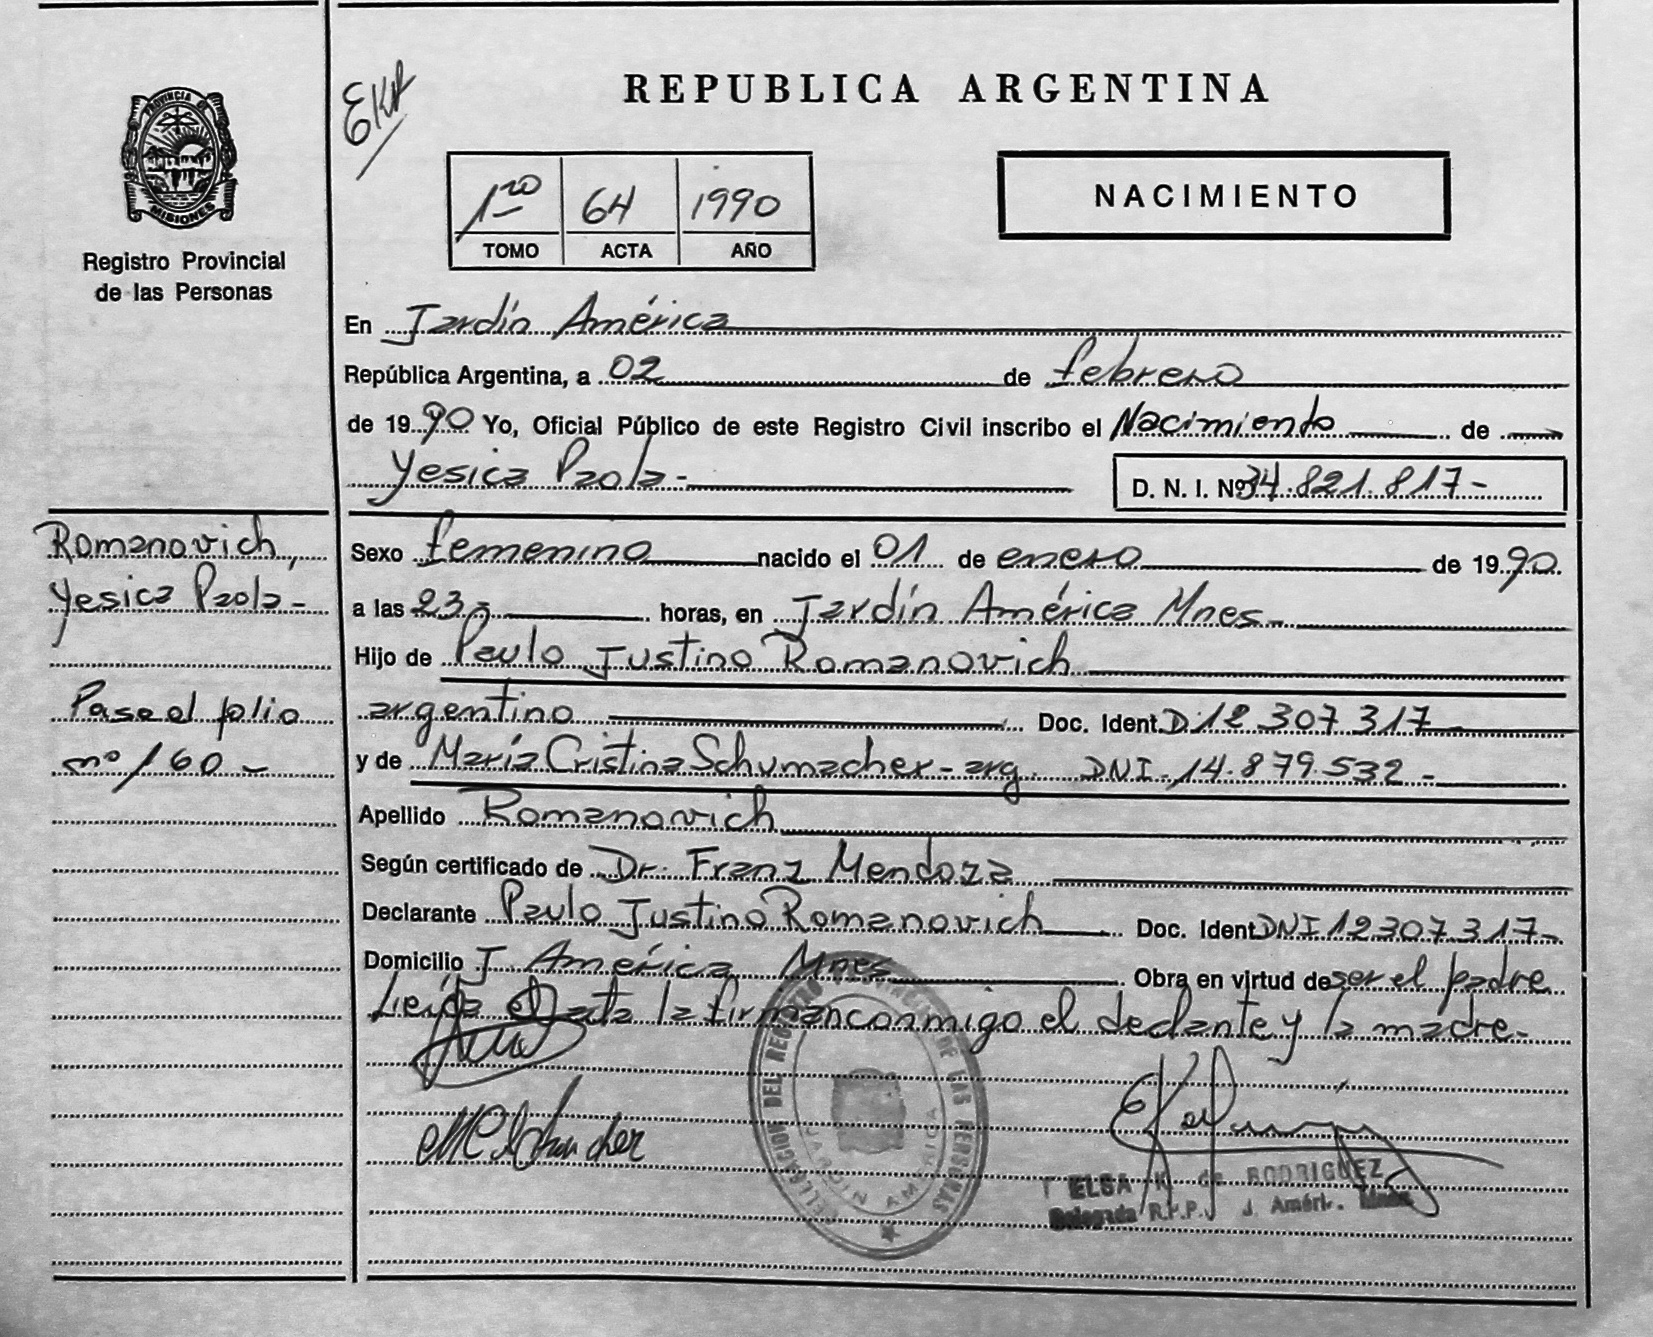 PROVINCIA DE
MISIONES
Registro Provincial
de las Personas
Romanovich,
Yesica Paola -
Pase al folio
nº 160 -
EKR
REPUBLICA ARGENTINA
1ro 64 1990
TOMO ACTA AÑO
NACIMIENTO
En Jardín América
República Argentina, a 02 de febrero
de 1990 Yo, Oficial Público de este Registro Civil inscribo el Nacimiento de
Yesica Paola - D. N. I. Nº 34.821.817-
Sexo femenino nacido el 01 de enero de 1990.
a las 23 horas, en Jardín América Mnes-
Hijo de Paulo Justino Romanovich
argentino Doc. Ident. D.12.307.317
y de María Cristina Schumacher - arg. DNI. 14.879.532 -
Apellido Romanovich
Según certificado de Dr. Franz Mendoza
Declarante Paulo Justino Romanovich Doc. Ident DNI 12.307.317-
Domicilio J. América Mnes Obra en virtud de ser el padre
Leída el acta la firman conmigo el declante y la madre-
DELEGACION DEL REGISTRO PROVINCIAL DE LAS PERSONAS
JARDIN AMERICA
ELSA K. de RODRIGUEZ
Delegada R.P.P. J. Améri. Mnes